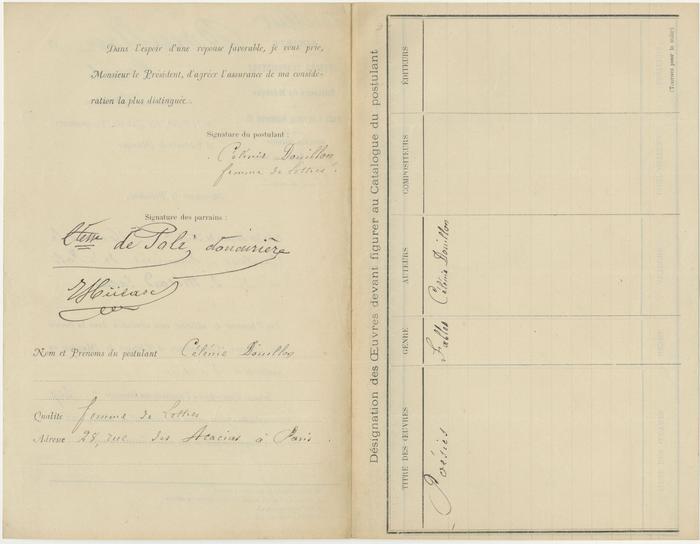 Dans l'espoir d'une reponse favorable, je vous prie,
Monsieur le Président, d'agréer l'assurance de ma considé-
ration la plus distinguée.
Signature du postulant :
Célinie Douillon
femme de Lettres.
Signature des parrains :
Ctesse de
Nom et Prénoms du postulant Célinie Douillon
Qualité femme de Lettres
Adresse 25, rue des Acacias à Paris.
Désignation des Œuvres devant figurer au Catalogue du postulant
TITRE DES ŒUVRES
GENRE
AUTEURS
COMPOSITEURS
ÉDITEURS
Poésies
Fables
Célinie Douillon
(Tournez pour la suite)